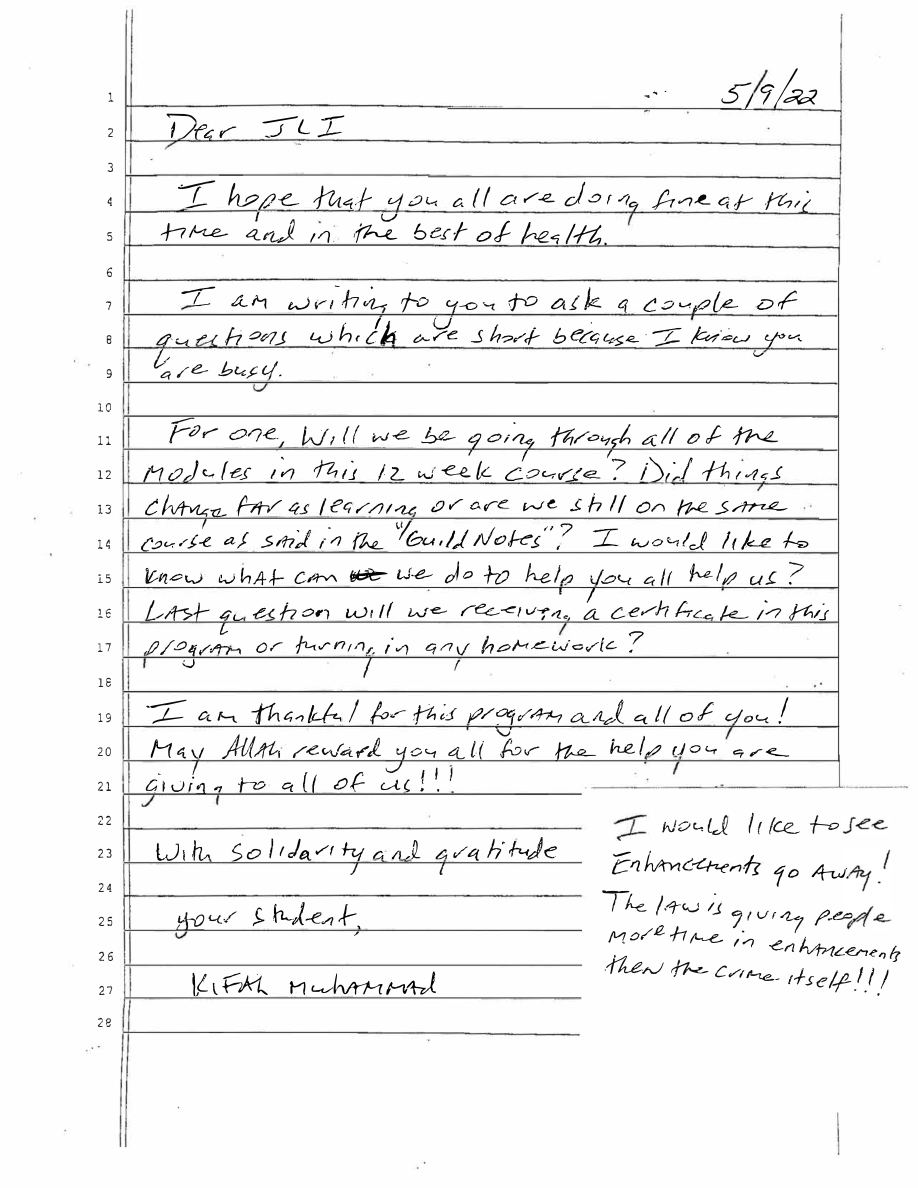 5/9/22
1
2 Dear JLI
3
4 I hope that you all are doing fine at this
5 time and in the best of health.
6
7 I am writing to you to ask a couple of
8 questions which are short because I know you
9 are busy.
10
11 For one, Will we be going through all of the
12 Modules in this 12 week course? Did things
13 change far as learning or are we still on the same
14 course as said in the "Guild Notes"? I would like to
15 know what can we do to help you all help us?
16 Last question will we receiving a certificate in this
17 program or turning in any homework?
18
19 I am thankful for this program and all of you!
20 May Allah reward you all for the help you are
21 giving to all of us!!!
22
23 With solidarity and gratitude
24
25 your student,
26
27 Kifah Muhammad
28
I would like to see
Enhancements go away!
The law is giving people
more time in enhancements
then the crime itself!!!